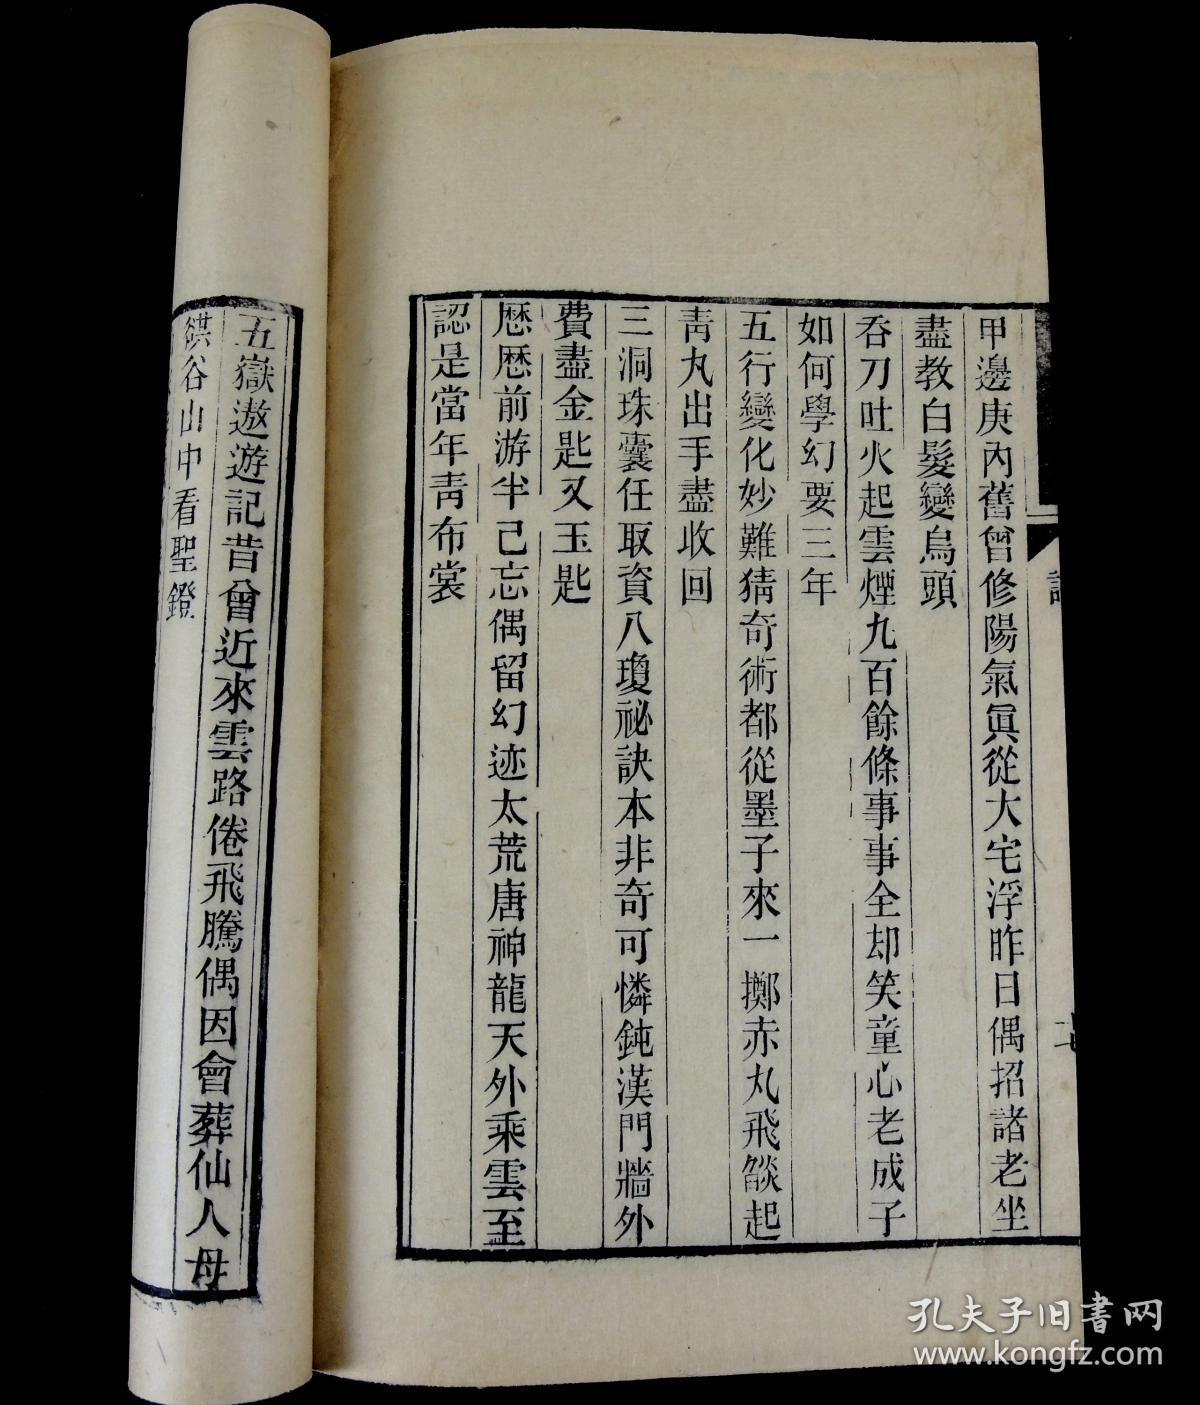 甲邊庚內舊曾修陽氣眞從大宅浮昨日偶招諸老坐
盡教白髮變烏頭
吞刀吐火起雲煙九百餘條事事全却笑童心老成子
如何學幻要三年
五行變化妙難猜奇術都從墨子來一擲赤丸飛燄起
靑丸出手盡收回
三洞珠囊任取資八瓊祕訣本非奇可憐鈍漢門牆外
費盡金匙又玉匙
歷歷前游半已忘偶留幻迹太荒唐神龍天外乘雲至
認是當年靑布裳
五嶽遨遊記昔曾近來雲路倦飛騰偶因會葬仙人母
谷山中看聖鐙
孔夫子旧书网
www.kongfz.com